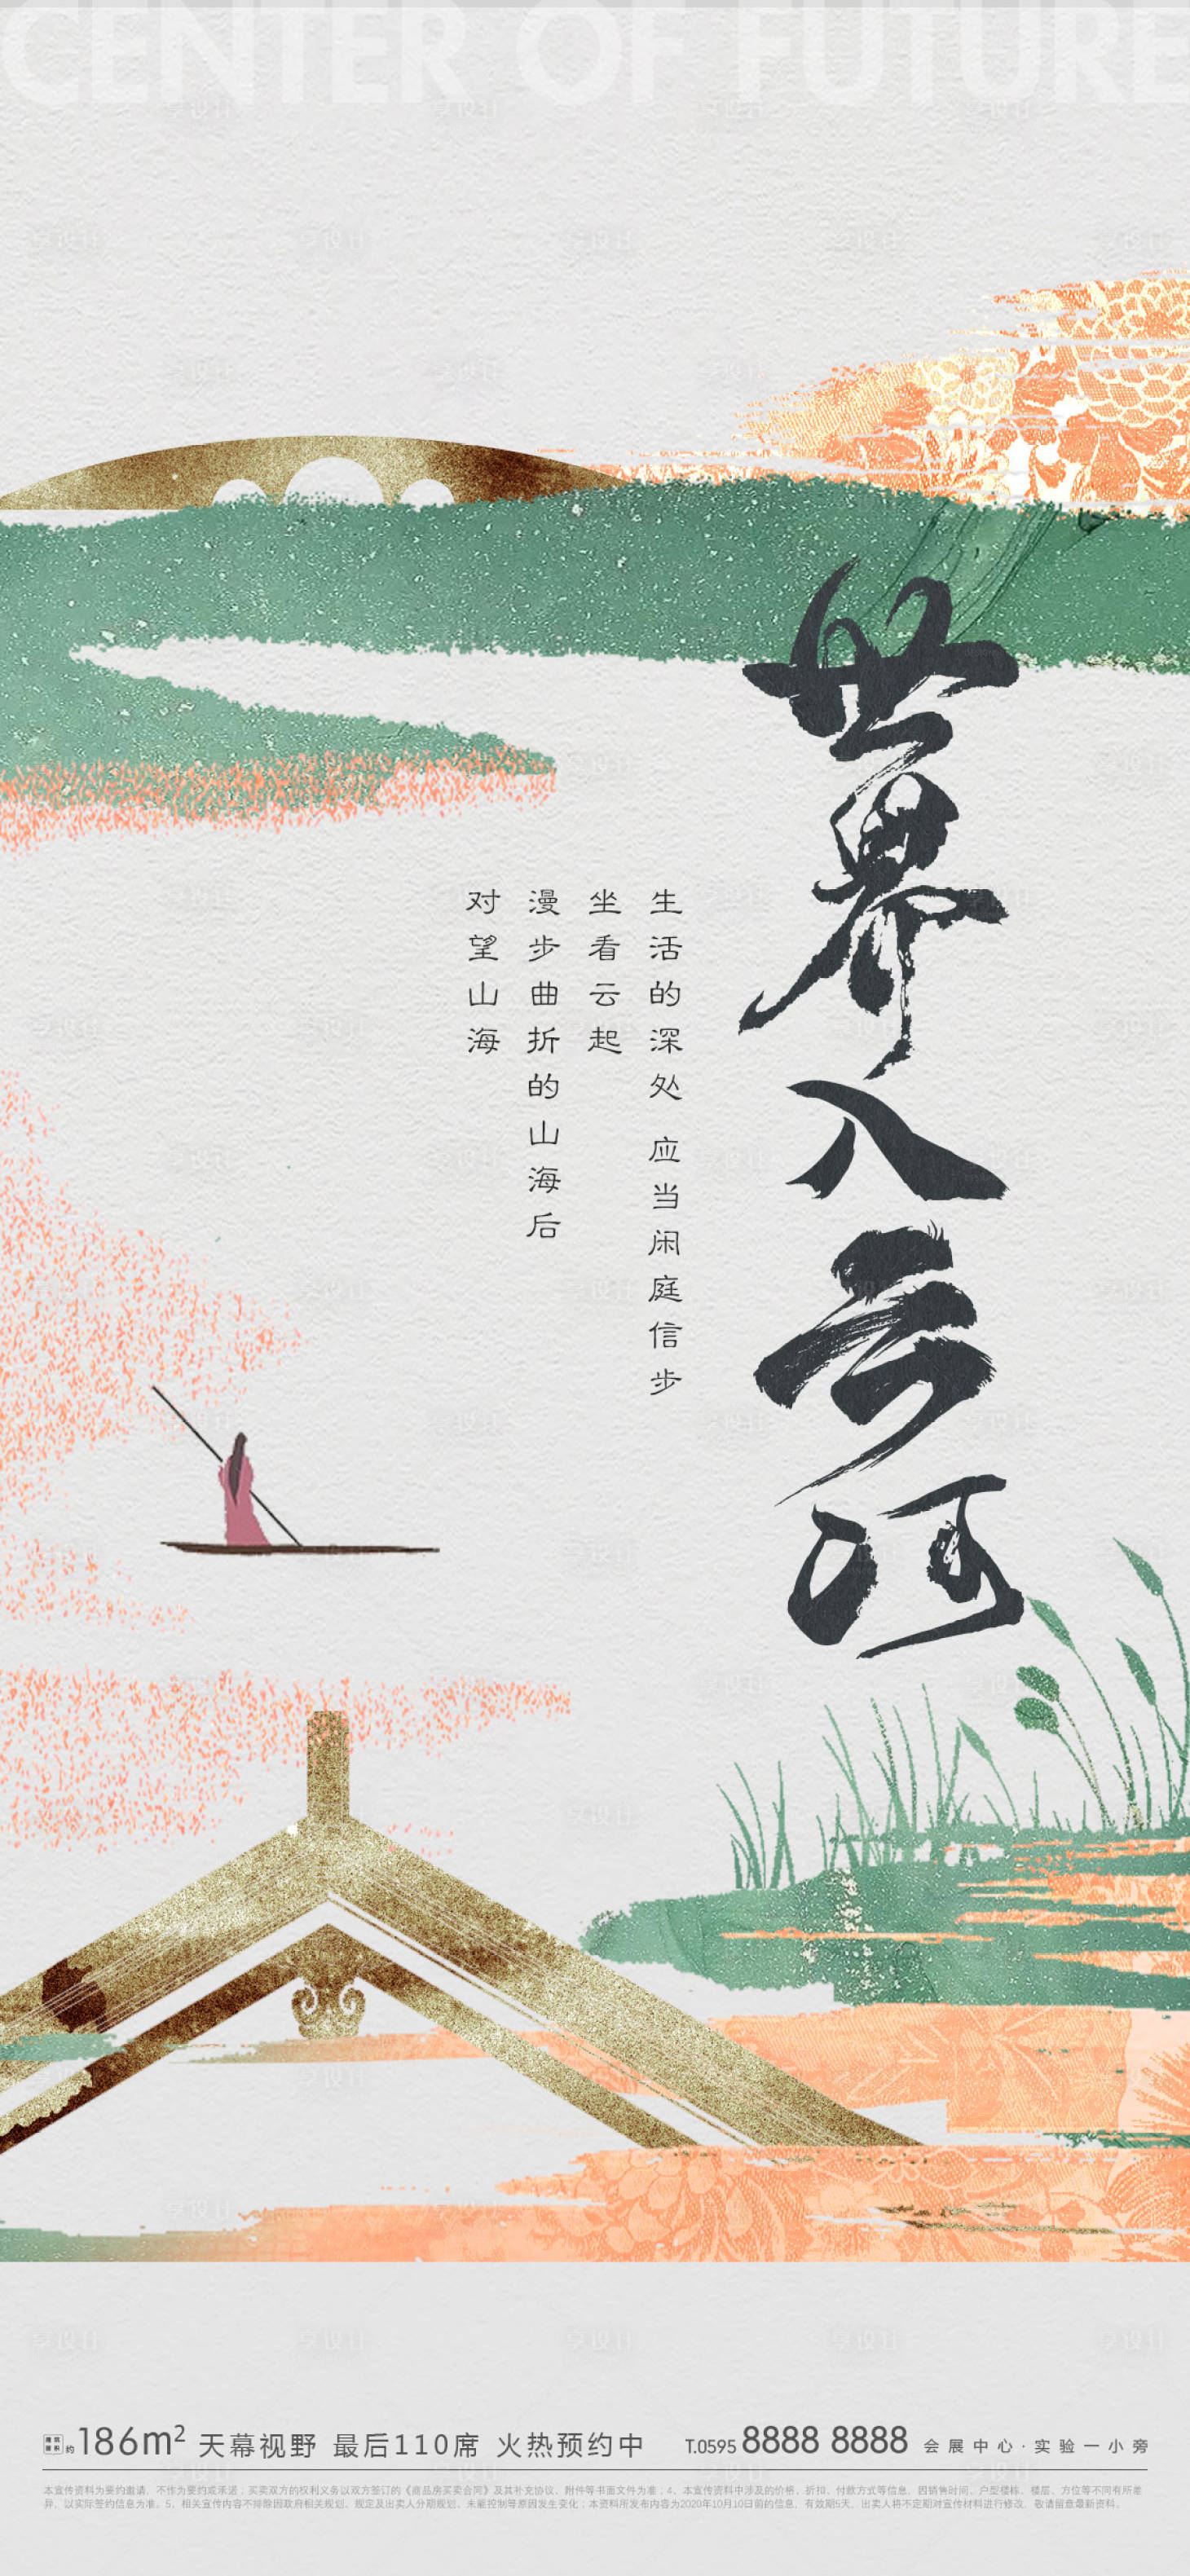 CENTER OF FUTURE
世界入云河
生活的深处 应当闲庭信步
坐看云起
漫步曲折的山海后
对望山海
建筑面积约186m² 天幕视野 最后110席 火热预约中 T.0595 8888 8888 会展中心·实验一小旁
本宣传资料为要约邀请，不作为要约或承诺；买卖双方的权利义务以双方签订的《商品房买卖合同》及其补充协议、附件等书面文件为准；4、本宣传资料中涉及的价格、折扣、付款方式等信息，因销售时间、户型楼栋、楼层、方位等不同有所差
异，以实际签约信息为准。5、相关宣传内容不排除因政府相关规划、规定及出卖人分期规划、未能控制等原因发生变化；本资料所发布内容为2020年10月10日前的信息，有效期5天，出卖人将不定期对宣传材料进行修改，敬请留意最新资料。
享设计